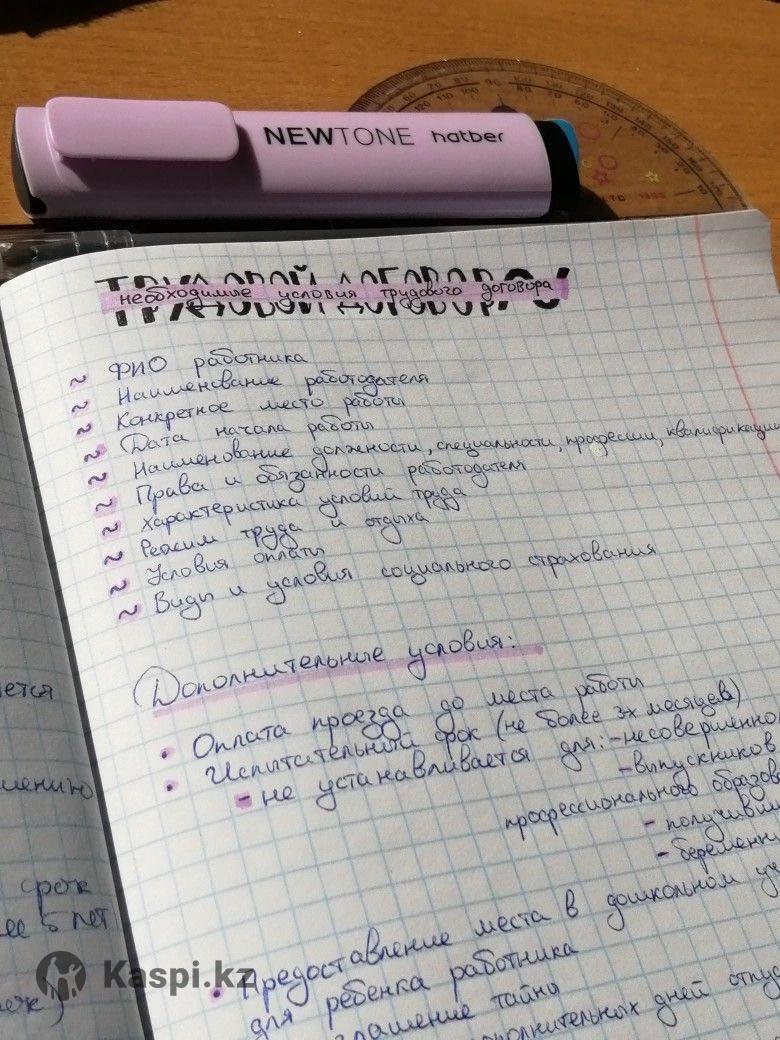 NEWTONE hatber
ТРУДОВОЙ ДОГОВОР
необходимые условия трудового договора
~ ФИО работника
~ Наименование работодателя
~ Конкретное место работы
~ Дата начала работы
~ Наименование должности, специальности, профессии, квалификации
~ Права и обязанности работодателя
~ Характеристика условий труда
~ Режим труда и отдыха
~ Условия оплаты
~ Виды и условия социального страхования
Дополнительные условия:
• Оплата проезда до места работы
• Испытательный срок (не более 3х месяцев)
- не устанавливается для: - несовершенно
- выпускников
профессионального образов
- получивши
- беременн
• Предоставление места в дошкольном уч
для ребенка работника
глашение тайны
ополнительных дней отпу
ется
менению
срок
ее 5 лет
Kaspi.kz